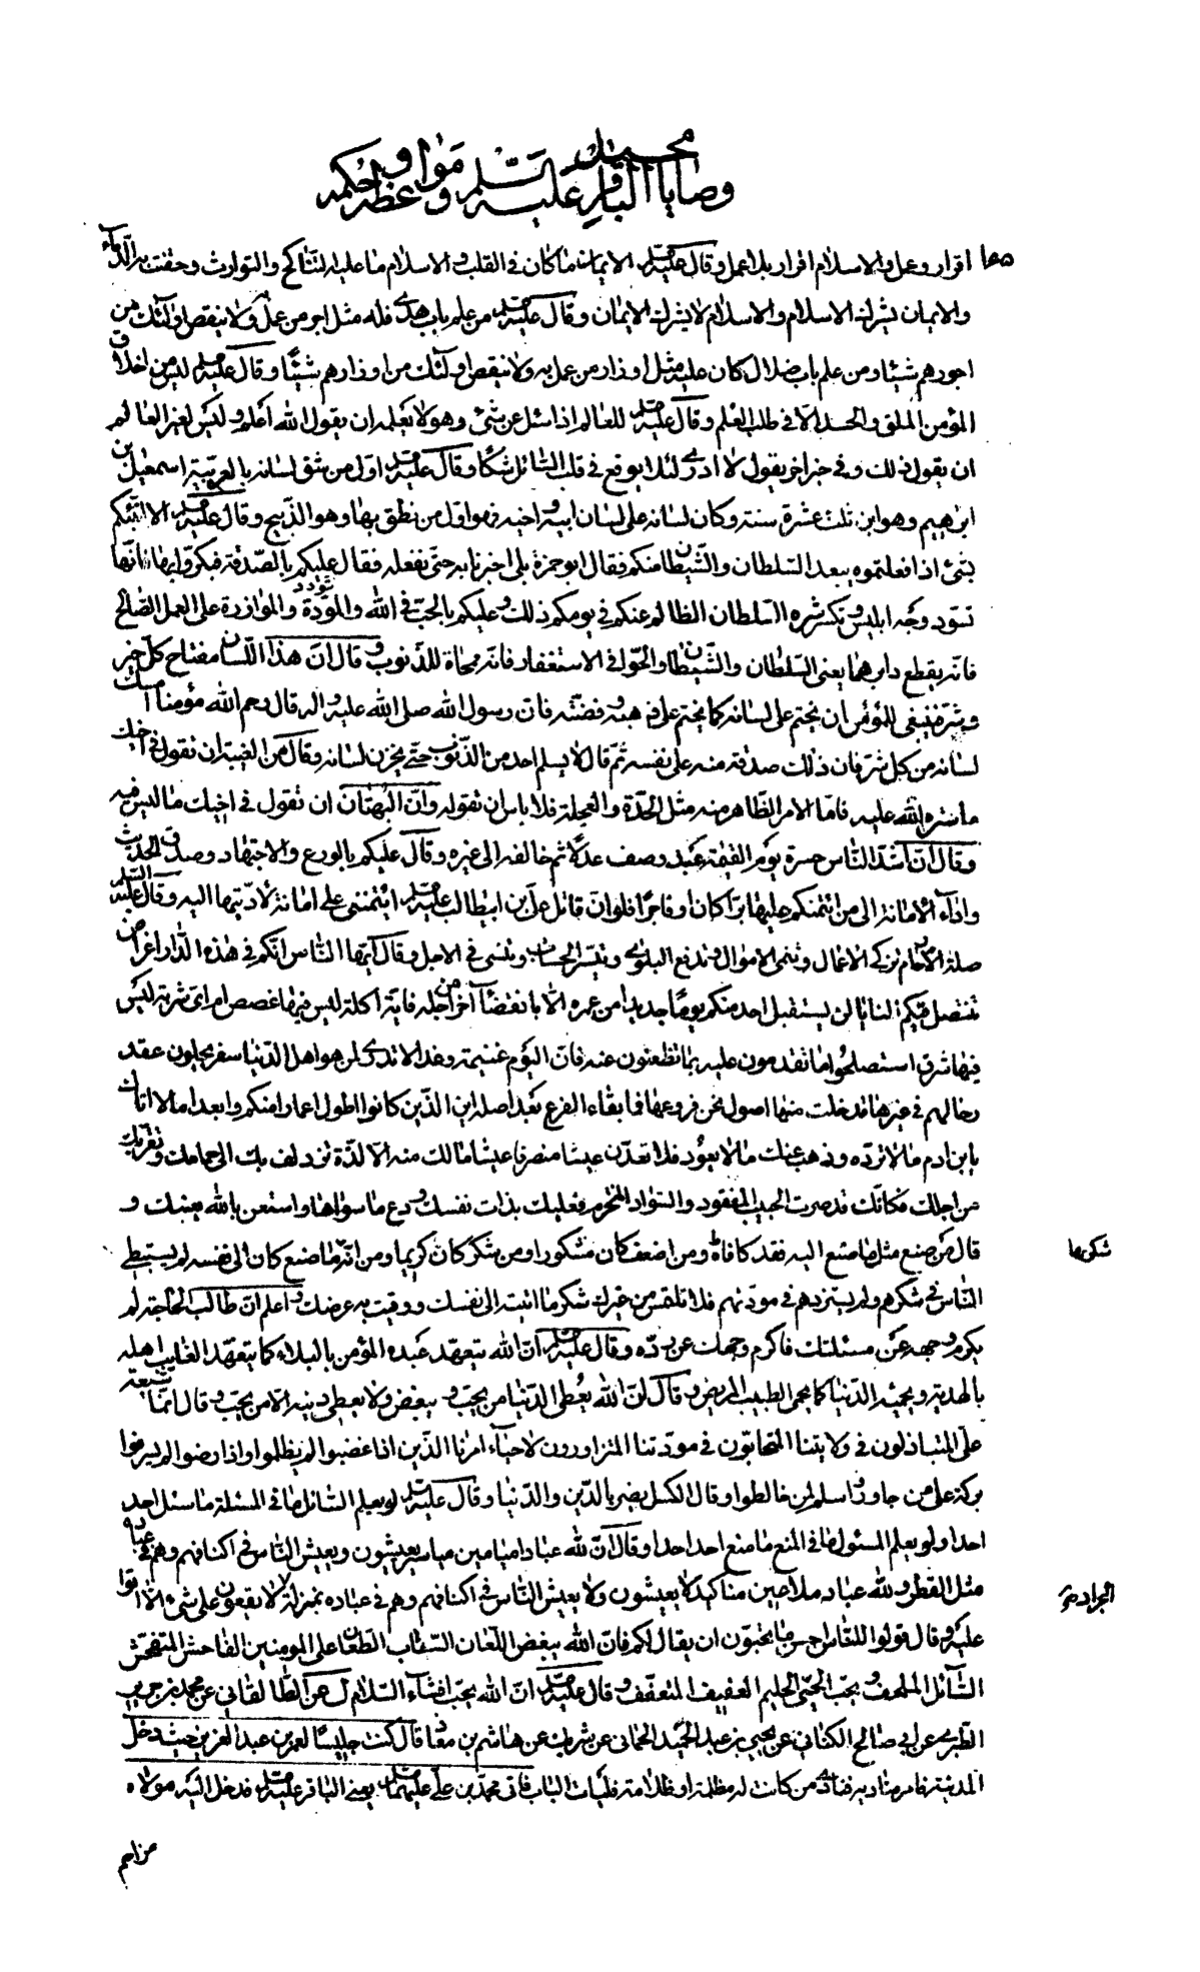 وصايا محمد بن علي الباقر عليه السلم ومواعظه وحكمه
١٨٥ اقرار وعمل والاسلام اقرار بلا عمل وقال عليه السلم الايمان ما كان فى القلب والاسلام ما عليه التناكح والتوارث وحقنت به الدماء
والايمان يشرك الاسلام والاسلام لا يشرك الايمان وقال عليه السلم من علم باب هدى فله مثل اجر من عمل به ولا ينقص اولئك من
اجورهم شيئا ومن علم باب ضلال كان عليه مثل اوزار من عمل به ولا ينقص اولئك من اوزارهم شيئا وقال عليه السلم ليس من اخلاق
المؤمن الملق والحسد الا فى طلب العلم وقال عليه السلم للعالم اذا سئل عن شئ وهو لا يعلمه ان يقول الله اعلم وليس لغير العالم
ان يقول ذلك وفى خبر اخر يقول لا ادرى لئلا يوقع فى قلب السائل شكا وقال عليه السلم اول من شق لسانه بالعربية اسمعيل بن
ابرهيم وهو ابن ثلث عشرة سنة وكان لسانه على لسان ابيه واخيه فهو اول من نطق بها وهو الذبيح وقال عليه السلم الا انبئكم
بشئ اذا فعلتموه يبعد السلطان والشيطان منكم فقال ابو حمزة بلى اخبرنا به حتى نفعله فقال عليكم بالصدقة فبكروا بها فانها
تسود وجه ابليس وتكسر شره السلطان الظالم عنكم فى يومكم ذلك وعليكم بالحب فى الله والمودة والموازرة على العمل الصالح
فانه يقطع دابرهما يعنى السلطان والشيطان والحوا فى الاستغفار فانه ممحاة للذنوب وقال ان هذا اللسان مفتاح كل خير
وشر فينبغى للمؤمن ان يختم على لسانه كما يختم على ذهبه وفضته فان رسول الله صلى الله عليه واله قال رحم الله مؤمنا امسك
لسانه من كل شر فان ذلك صدقة منه على نفسه ثم قال لا يسلم احد من الذنوب حتى يخزن لسانه وقال من الغيبة ان تقول فى اخيك
ما ستره الله عليه فاما الامر الظاهر منه مثل الحدة والعجلة فلا باس ان تقوله وان البهتان ان تقول فى اخيك ما ليس فيه
وقال ان اشد الناس حسرة يوم القيمة عبد وصف عدلا ثم خالفه الى غيره وقال عليكم بالورع والاجتهاد وصدق الحديث
واداء الامانة الى من ائتمنكم عليها برا كان او فاجرا فلو ان قاتل على بن ابيطالب عليه السلم ائتمننى على امانة لاديتها اليه وقال عليه السلم
صلة الارحام تزكى الاعمال وتنمى الاموال وتدفع البلوى وتيسر الحساب وتنسئ فى الاجل وقال ايها الناس انكم فى هذه الدار اغراض
تنتضل فيكم المنايا لن يستقبل احد منكم يوما جديدا من عمره الا بانقضاء آخر من اجله فاية اكلة ليس فيها غصص ام اى شربة ليس
فيها شرق استصلحوا ما تقدمون عليه بما تظعنون عنه فان اليوم غنيمة وغدا لا تدرى لمن هو اهل الدنيا سفر يحلون عقد
رحالهم فى غيرها قد خلت منها اصول نحن فروعها فما بقاء الفرع بعد اصله اين الذين كانوا اطول اعمارا منكم وابعد امالا اتاك
يابن ادم ما لا ترده وذهب عنك ما لا يعود فلا تعدن عيشا منصرفا عيشا مالك منه الا لذة تزدلف بك الى حمامك وتقربك
من اجلك فكانك قد صرت الحبيب المفقود والسواد المخترم فعليك بذات نفسك ودع ما سواها واستعن بالله يعينك و
قال من صنع مثل ما صنع اليه فقد كافاه ومن اضعف كان شكورا ومن شكر كان كريما ومن انه ما صنع كان الى نفسه لم يستبطئ
الناس فى شكرهم ولم يستزدهم فى مودتهم فلا تلتمس من غيرك شكر ما اتيته الى نفسك ووقيت به عرضك واعلم ان طالب الحاجة لم
يكرم وجهه عن مسئلتك فاكرم وجهك عن رده وقال عليه السلم ان الله يتعهد عبده المؤمن بالبلاء كما يتعهد الغايب اهله
بالهدية ويحميه الدنيا كما يحمى الطبيب المريض وقال ان الله يعطى الدنيا من يحب ويبغض ولا يعطى دينه الا من يحب وقال انما شيعة
على المتباذلون فى ولايتنا المتحابون فى مودتنا المتزاورون لاحياء امرنا الذين اذا غضبوا لم يظلموا واذا رضوا لم يسرفوا
بركة على من جاوروا سلم لمن خالطوا وقال الكسل يضر بالدين والدنيا وقال عليه السلم لو يعلم السائل ما فى المسئلة ما سئل احد
احدا ولو يعلم المسئول ما فى المنع ما منع احد احدا وقال ان لله عبادا ميامين مياسير يعيشون ويعيش الناس فى اكنافهم وهم فى عباده
مثل القطر ولله عباد ملاعين مناكيد لا يعيشون ولا يعيش الناس فى اكنافهم وهم فى عباده بمنزلة لا يقعون على شئ الا اتوا
عليه وقال قولوا للناس احسن ما تحبون ان يقال لكم فان الله يبغض اللعان السباب الطعان على المومنين الفاحش المتفحش
السائل الملحف ويحب الحيى الحليم العفيف المتعفف وقال عليه السلم ان الله يحب افشاء السلام ل عن الطالقانى عن محمد بن جرير
الطبرى عن ابى صالح الكنانى عن يحيى بن عبد الحميد الحمانى عن شريك عن هاشم بن معاذ قال كنت جليسا لعمر بن عبد العزيز حيث دخل
المدينة فامر مناديه فنادى من كانت له مظلمة او ظلامة فليات الباب فاتى محمد بن على عليهما السلم يعنى الباقر عليه السلم فدخل اليه مولاه
الجراد
مزاحم